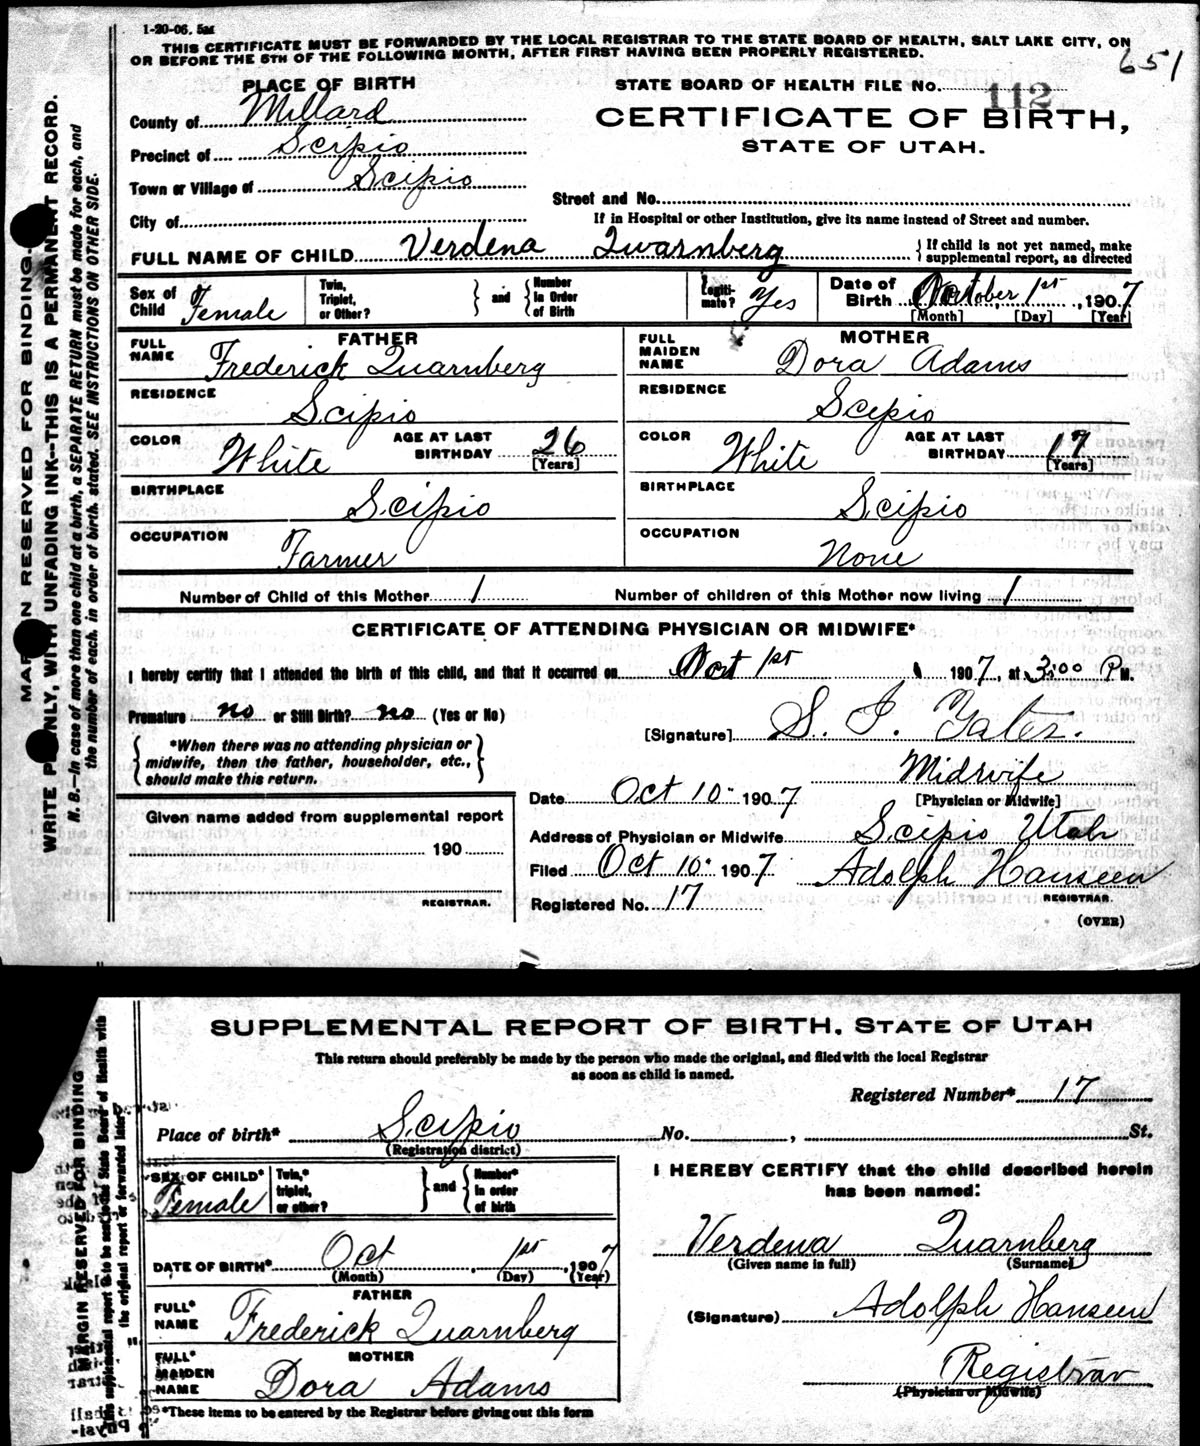 1-20-06. 5M
THIS CERTIFICATE MUST BE FORWARDED BY THE LOCAL REGISTRAR TO THE STATE BOARD OF HEALTH, SALT LAKE CITY, ON
OR BEFORE THE 5TH OF THE FOLLOWING MONTH, AFTER FIRST HAVING BEEN PROPERLY REGISTERED.
651
PLACE OF BIRTH
STATE BOARD OF HEALTH FILE No. 112
County of Millard
CERTIFICATE OF BIRTH,
Precinct of Scipio
STATE OF UTAH.
Town or Village of Scipio
Street and No.
City of
If in Hospital or other Institution, give its name instead of Street and number.
FULL NAME OF CHILD Verdena Quarnberg
{ If child is not yet named, make
supplemental report, as directed
Sex of Child Female
Twin, Triplet, or Other? } and { Number in Order of Birth
Legitimate? Yes
Date of Birth October 1st, 1907
[Month] [Day] [Year]
FATHER
FULL NAME Frederick Quarnberg
MOTHER
FULL MAIDEN NAME Dora Adams
RESIDENCE Scipio
RESIDENCE Scipio
COLOR White AGE AT LAST BIRTHDAY 26 [Years]
COLOR White AGE AT LAST BIRTHDAY 17 [Years]
BIRTHPLACE Scipio
BIRTHPLACE Scipio
OCCUPATION Farmer
OCCUPATION None
Number of Child of this Mother 1 Number of children of this Mother now living 1
CERTIFICATE OF ATTENDING PHYSICIAN OR MIDWIFE*
I hereby certify that I attended the birth of this child, and that it occurred on Oct 1st 1907, at 3:00 P M.
Premature no or Still Birth? no (Yes or No)
[Signature] S. I. Yates.
{ *When there was no attending physician or
midwife, then the father, householder, etc.,
should make this return. }
Midwife
[Physician or Midwife]
Date Oct 10 1907
Given name added from supplemental report
190
REGISTRAR.
Address of Physician or Midwife Scipio Utah
Filed Oct 10 1907 Adolph Hanseen
REGISTRAR.
Registered No. 17
(OVER)
MARGIN RESERVED FOR BINDING.
WRITE PLAINLY, WITH UNFADING INK--THIS IS A PERMANENT RECORD.
N. B.--In case of more than one child at a birth, a SEPARATE RETURN must be made for each, and
the number of each, in order of birth, stated. SEE INSTRUCTIONS ON OTHER SIDE.
SUPPLEMENTAL REPORT OF BIRTH, STATE OF UTAH
This return should preferably be made by the person who made the original, and filed with the local Registrar
as soon as child is named.
Registered Number* 17
Place of birth* Scipio No. , St.
(Registration district)
SEX OF CHILD* Female
Twin,* triplet, or other? } and { Number* in order of birth
DATE OF BIRTH* Oct 1st, 1907
(Month) (Day) (Year)
FATHER
FULL* NAME Frederick Quarnberg
MOTHER
FULL* MAIDEN NAME Dora Adams
*These items to be entered by the Registrar before giving out this form
I HEREBY CERTIFY that the child described herein
has been named:
Verdena Quarnberg
(Given name in full) (Surname)
(Signature) Adolph Hanseen
Registrar
(Physician or Midwife)
MARGIN RESERVED FOR BINDING
This supplemental report to be sent to the State Board of Health with
the original report or forwarded later